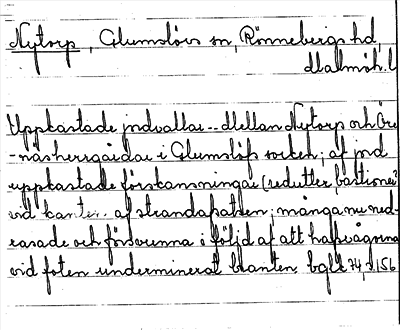 Nytorp, Glumslövs sn, Rönnebergs hd,
Malmöh. l
Uppkastade jordvallar -- Mellan Nytorp och Öre
-näs herrgårdar i Glumslöfs socken, af jord
uppkastade förskansningar (redutter, bastioner)
vid kanten af strandabatten; många nu ned-
rasade och försvunna i följd af att hafsvågorna
vid foten underminerat branten. bglk 74, s. 156